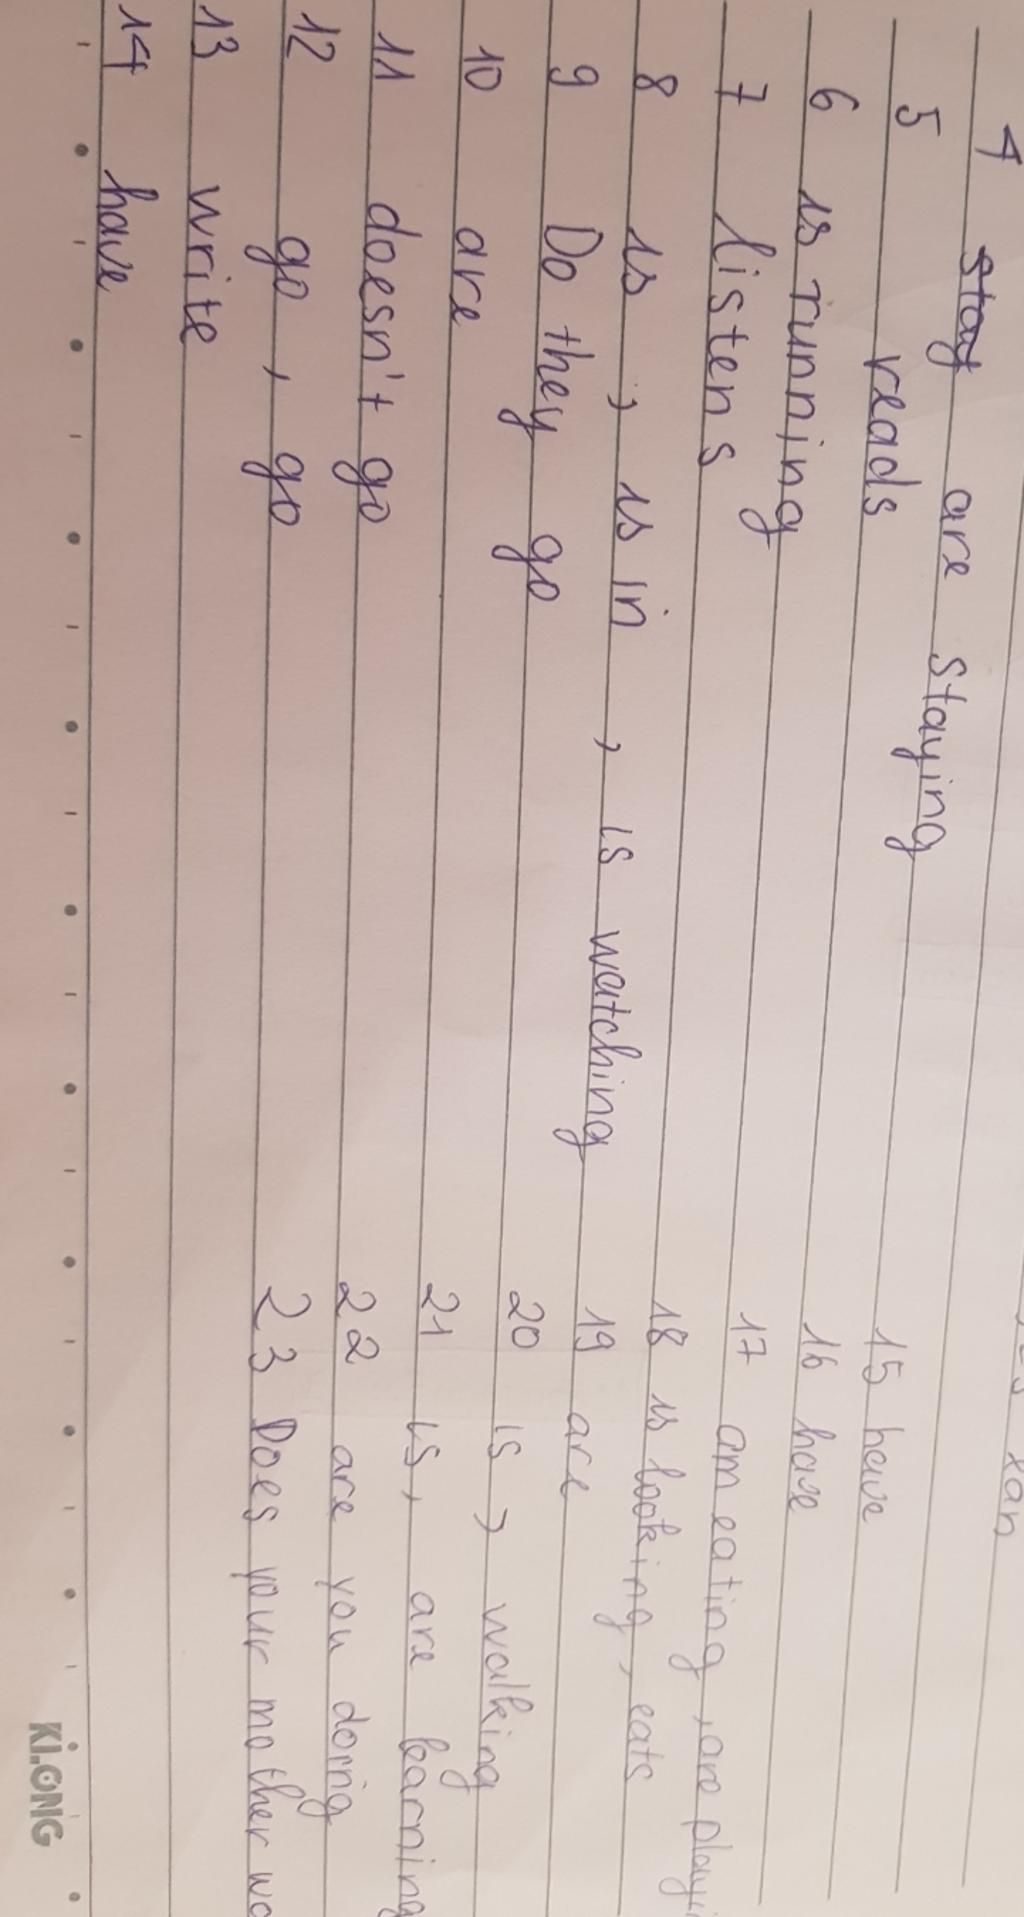 4 stay are staying
5 reads
6 is running
7 listens
8 is, is in, is watching
9 Do they go
10 are
11 doesn't go
12 go, go
13 write
14 have
15 have
16 have
17 am eating, are
18 is looking, eats
19 are
20 is, walking
21 is, are learning
22 are you doing
23 Does your mother
KLONG